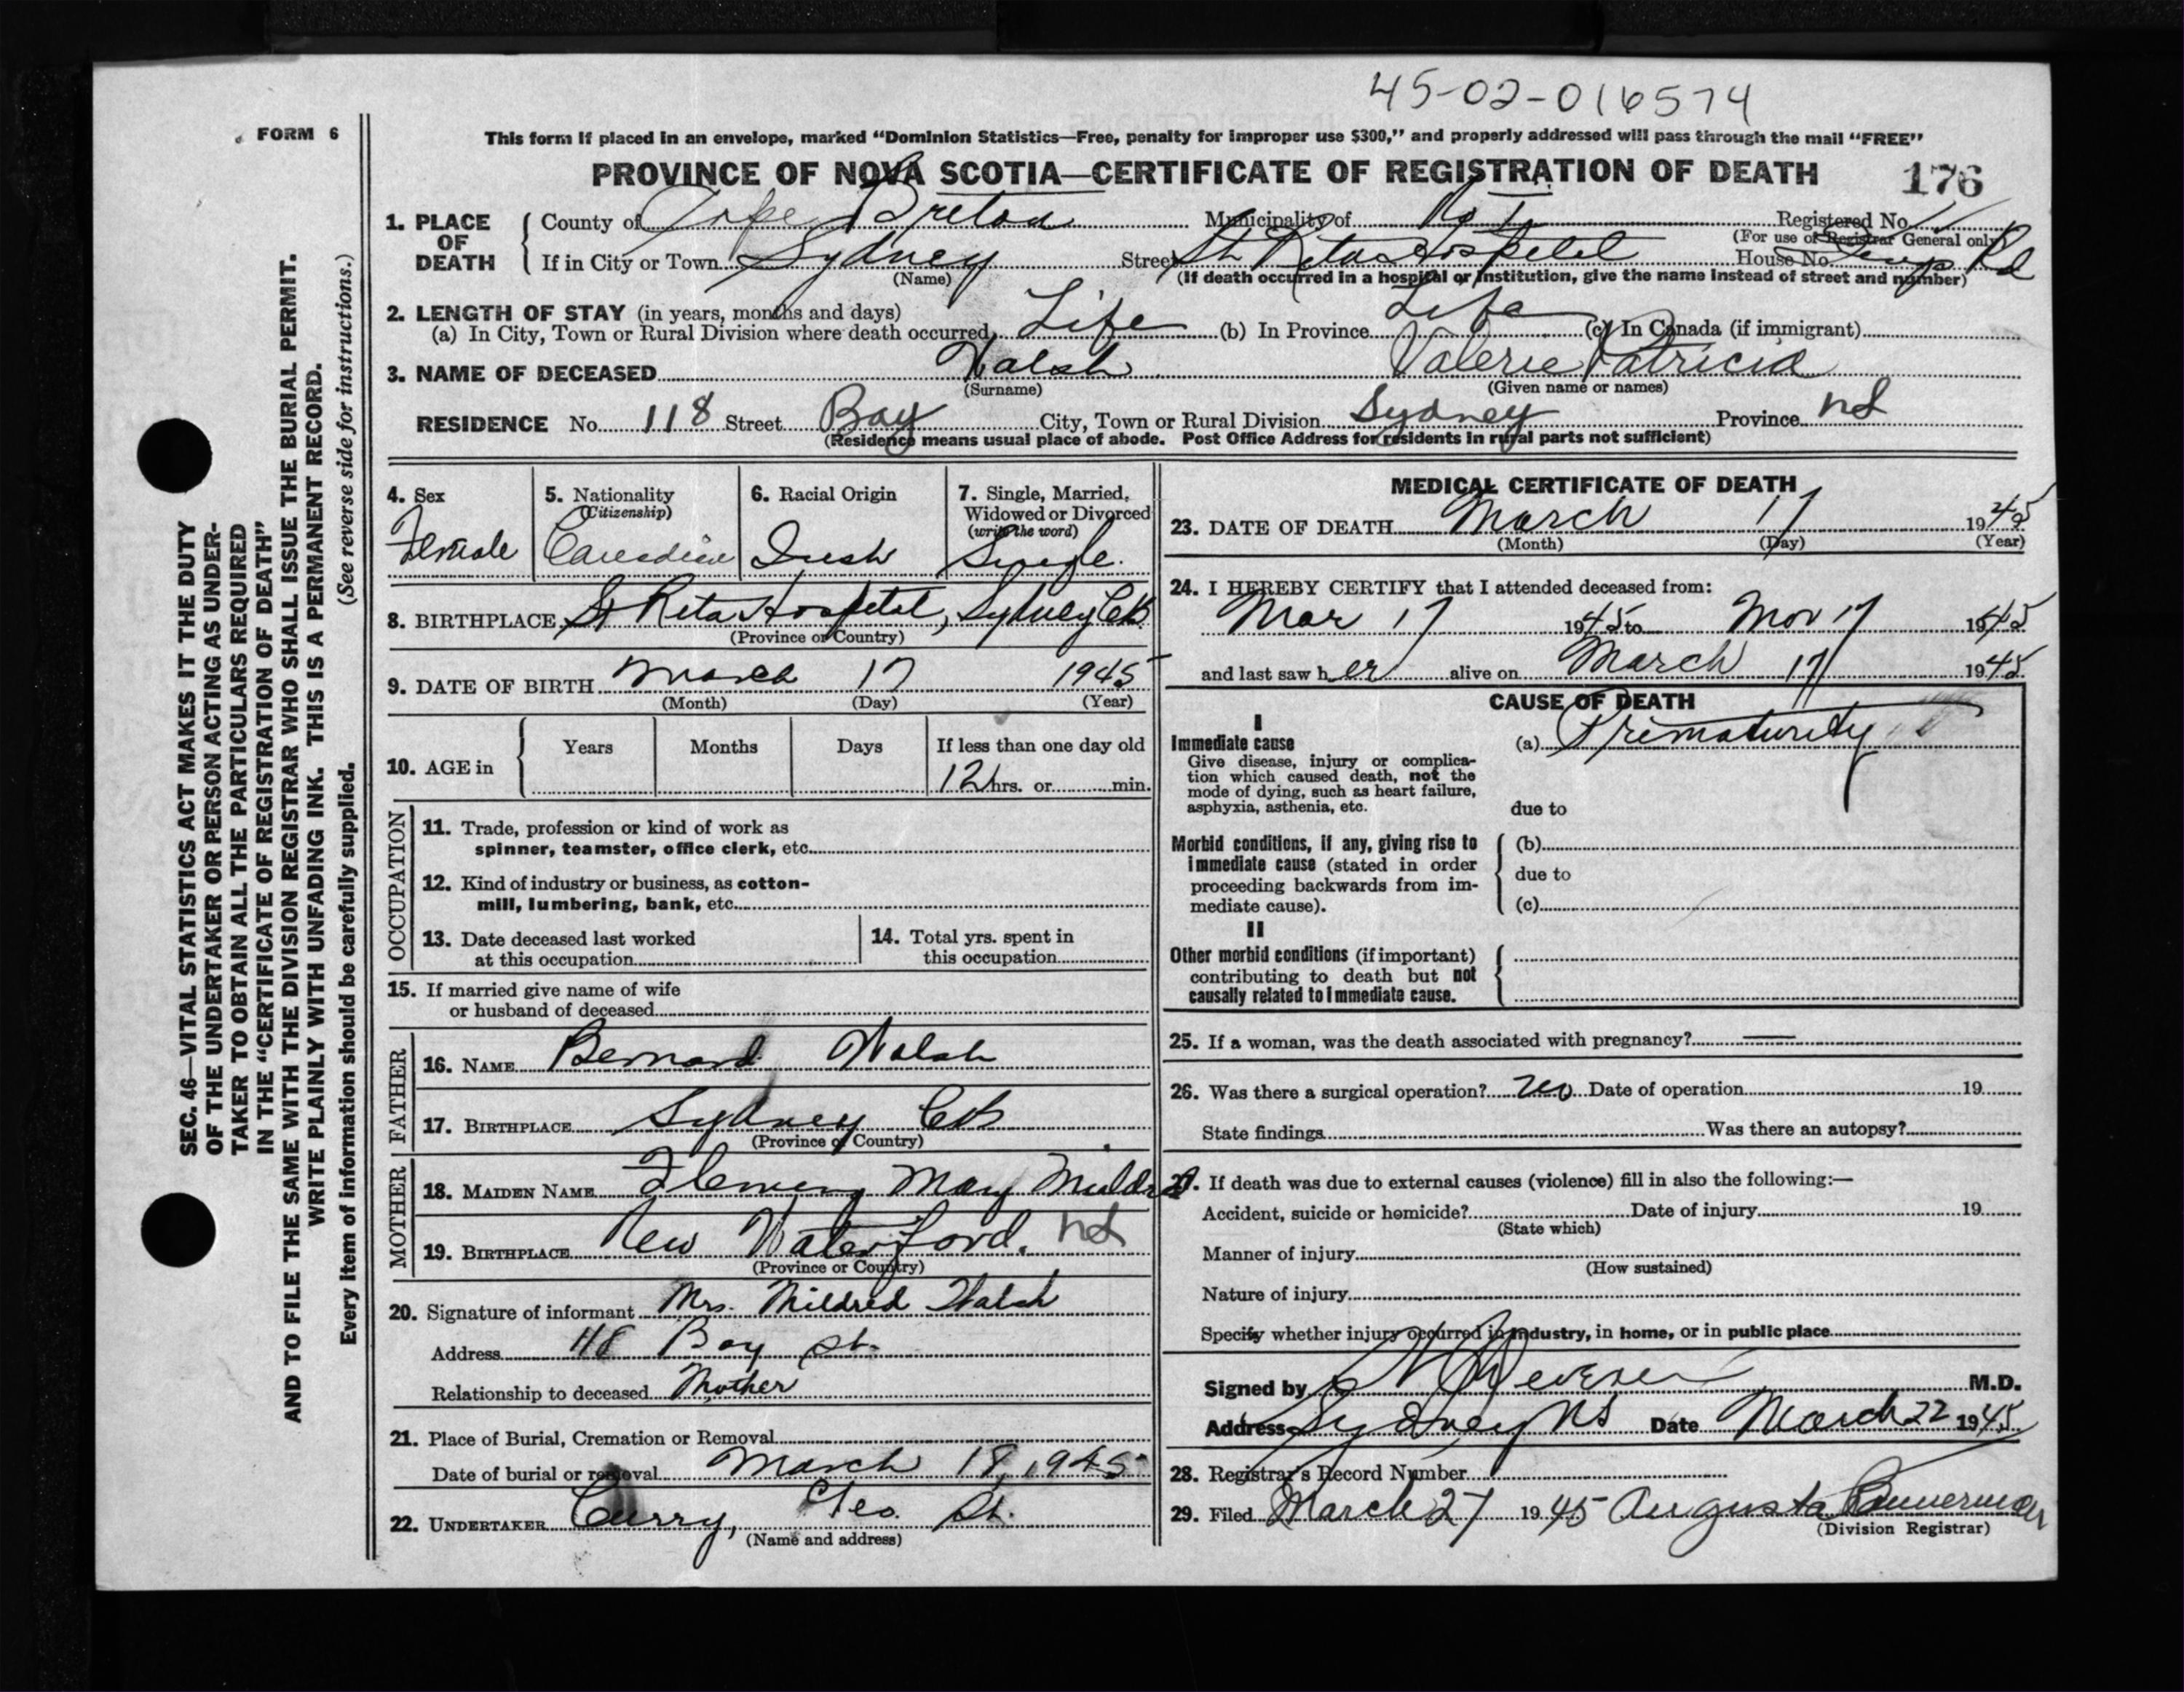 45-02-016574
FORM 6
This form if placed in an envelope, marked “Dominion Statistics—Free, penalty for improper use $300,” and properly addressed will pass through the mail “FREE”
PROVINCE OF NOVA SCOTIA—CERTIFICATE OF REGISTRATION OF DEATH 176
1. PLACE OF DEATH
County of Cape Breton Municipality of No 1 Registered No.
(For use of Registrar General only)
If in City or Town Sydney Street St Rita Hospital House No. Rd
(Name) (If death occurred in a hospital or institution, give the name instead of street and number)
2. LENGTH OF STAY (in years, months and days)
(a) In City, Town or Rural Division where death occurred Life (b) In Province Life (c) In Canada (if immigrant)
3. NAME OF DECEASED Walsh Valerie Patricia
(Surname) (Given name or names)
RESIDENCE No. 118 Street Bay City, Town or Rural Division Sydney Province NS
(Residence means usual place of abode. Post Office Address for residents in rural parts not sufficient)
4. Sex
Female
5. Nationality
(Citizenship)
Canadian
6. Racial Origin
Irish
7. Single, Married, Widowed or Divorced
(write the word)
Single.
8. BIRTHPLACE St Rita Hospital, Sydney CB
(Province or Country)
9. DATE OF BIRTH March 17 1945
(Month) (Day) (Year)
10. AGE in
Years Months Days If less than one day old
12 hrs. or min.
OCCUPATION
11. Trade, profession or kind of work as
spinner, teamster, office clerk, etc.
12. Kind of industry or business, as cotton-
mill, lumbering, bank, etc.
13. Date deceased last worked
at this occupation
14. Total yrs. spent in
this occupation
15. If married give name of wife
or husband of deceased
FATHER
16. NAME Bernard Walsh
17. BIRTHPLACE Sydney CB
(Province or Country)
MOTHER
18. MAIDEN NAME Fleming Mary Mildred
19. BIRTHPLACE New Waterford. NS
(Province or Country)
20. Signature of informant Mrs. Mildred Walsh
Address 118 Bay St.
Relationship to deceased Mother
21. Place of Burial, Cremation or Removal
Date of burial or removal March 18, 1945
22. UNDERTAKER Curry, Geo. St.
(Name and address)
MEDICAL CERTIFICATE OF DEATH
23. DATE OF DEATH March 17 1945
(Month) (Day) (Year)
24. I HEREBY CERTIFY that I attended deceased from:
Mar 17 1945 to Mar 17 1945
and last saw h er alive on March 17 1945
CAUSE OF DEATH
I
Immediate cause
Give disease, injury or complica-
tion which caused death, not the
mode of dying, such as heart failure,
asphyxia, asthenia, etc.
(a) Prematurity
due to
Morbid conditions, if any, giving rise to
immediate cause (stated in order
proceeding backwards from im-
mediate cause).
(b)
due to
(c)
II
Other morbid conditions (if important)
contributing to death but not
causally related to immediate cause.
25. If a woman, was the death associated with pregnancy? —
26. Was there a surgical operation? no Date of operation 19
State findings Was there an autopsy?
27. If death was due to external causes (violence) fill in also the following:—
Accident, suicide or homicide? Date of injury 19
(State which)
Manner of injury
(How sustained)
Nature of injury
Specify whether injury occurred in industry, in home, or in public place
Signed by M.D.
Address Sydney NS Date March 22 1945
28. Registrar's Record Number
29. Filed March 27 1945 Augusta Bannerman
(Division Registrar)
SEC. 46—VITAL STATISTICS ACT MAKES IT THE DUTY
OF THE UNDERTAKER OR PERSON ACTING AS UNDER-
TAKER TO OBTAIN ALL THE PARTICULARS REQUIRED
IN THE “CERTIFICATE OF REGISTRATION OF DEATH”
AND TO FILE THE SAME WITH THE DIVISION REGISTRAR WHO SHALL ISSUE THE BURIAL PERMIT.
WRITE PLAINLY WITH UNFADING INK. THIS IS A PERMANENT RECORD.
Every item of information should be carefully supplied. (See reverse side for instructions.)